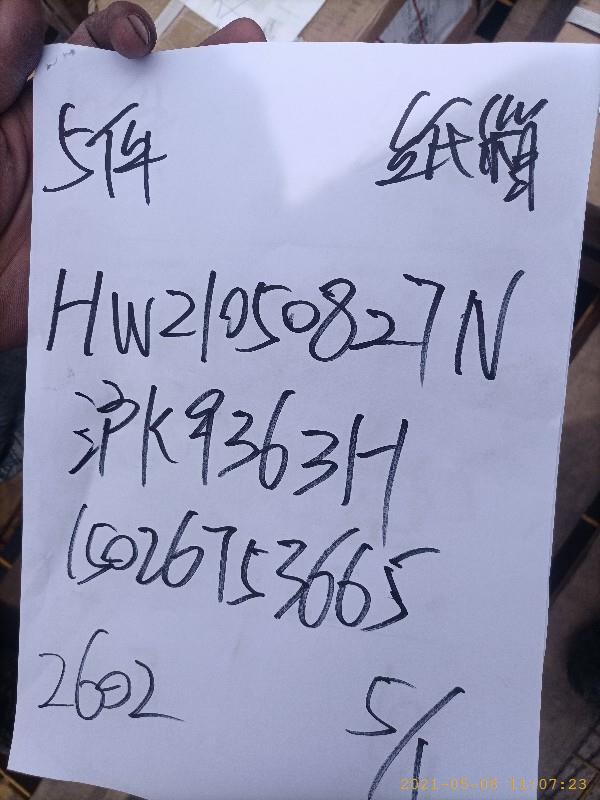 5件 纸箱
HW21050827N
沪K9363H
15026753665
2602 5/1
2021-05-08 11:07:23